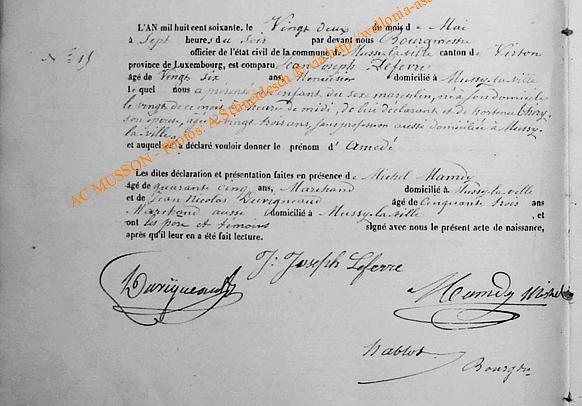 L'AN mil huit cent soixante, le Vingt deux du mois de Mai
à Sept heures du Soir par devant nous Bourgmestre
Nº 15
officier de l'état civil de la commune de Mussy-la-ville canton de Virton
province de Luxembourg, est comparu Jean Joseph Leferre
âgé de Vingt Six ans, domicilié à Mussy-la-Ville
lequel nous a présenté un enfant du Sexe masculin, né à Son domicile
le vingt de ce mois à heure de midi, de lui déclarant et de hortense
son épouse, âgée vingt trois ans, sans profession aussi domiciliée à Mussy-
la-ville
et auquel il a déclaré vouloir donner le prénom d'Amedé
Les dites déclaration et présentation faites en présence de Michel Mamdy
âgé de quarante cinq ans, Marchand domicilié à Mussy-la-ville
et de Jean Nicolas Duvigneaud âgé de Cinquante trois ans
Marchand aussi domicilié à Mussy-la-ville, et
ont les père et témoins signé avec nous le présent acte de naissance,
après qu'il leur en a été fait lecture.
J. Joseph Leferre
Duvigneaud
Mamdy Michel
Bourgtre
AC MUSSON - Photos: A.Schneidesch